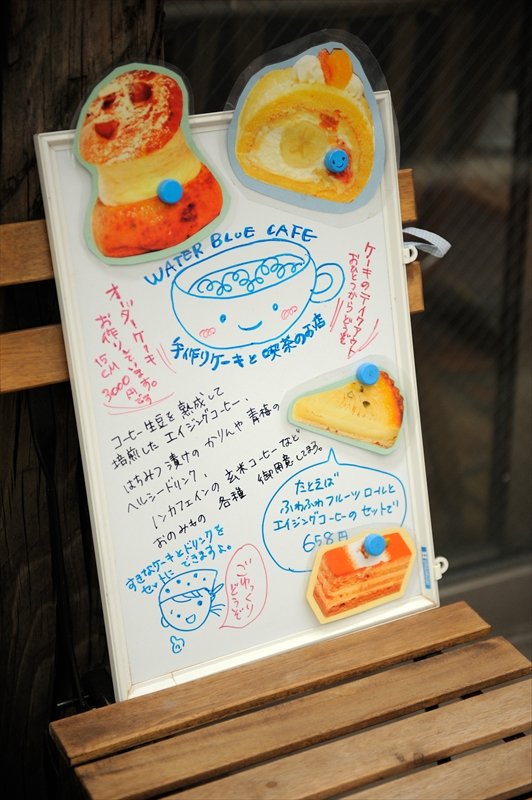 WATER BLUE CAFE
手作りケーキと喫茶のお店
ケーキのテイクアウト
おひとつからどうぞ
オーダーケーキ
お作りしています。
15CM
3000円です
コーヒー生豆を熟成して
焙煎した エイジングコーヒー、
はちみつ漬けの かりんや 青梅の
ヘルシードリンク、
ノンカフェインの 玄米コーヒーなど
おのみもの 各種 御用意してます。
たとえば
ふわふわフルーツロールと
エイジングコーヒーのセットで
658円
すきなケーキとドリンクを
セットに できますよ。
ごゆっくり
どうぞ